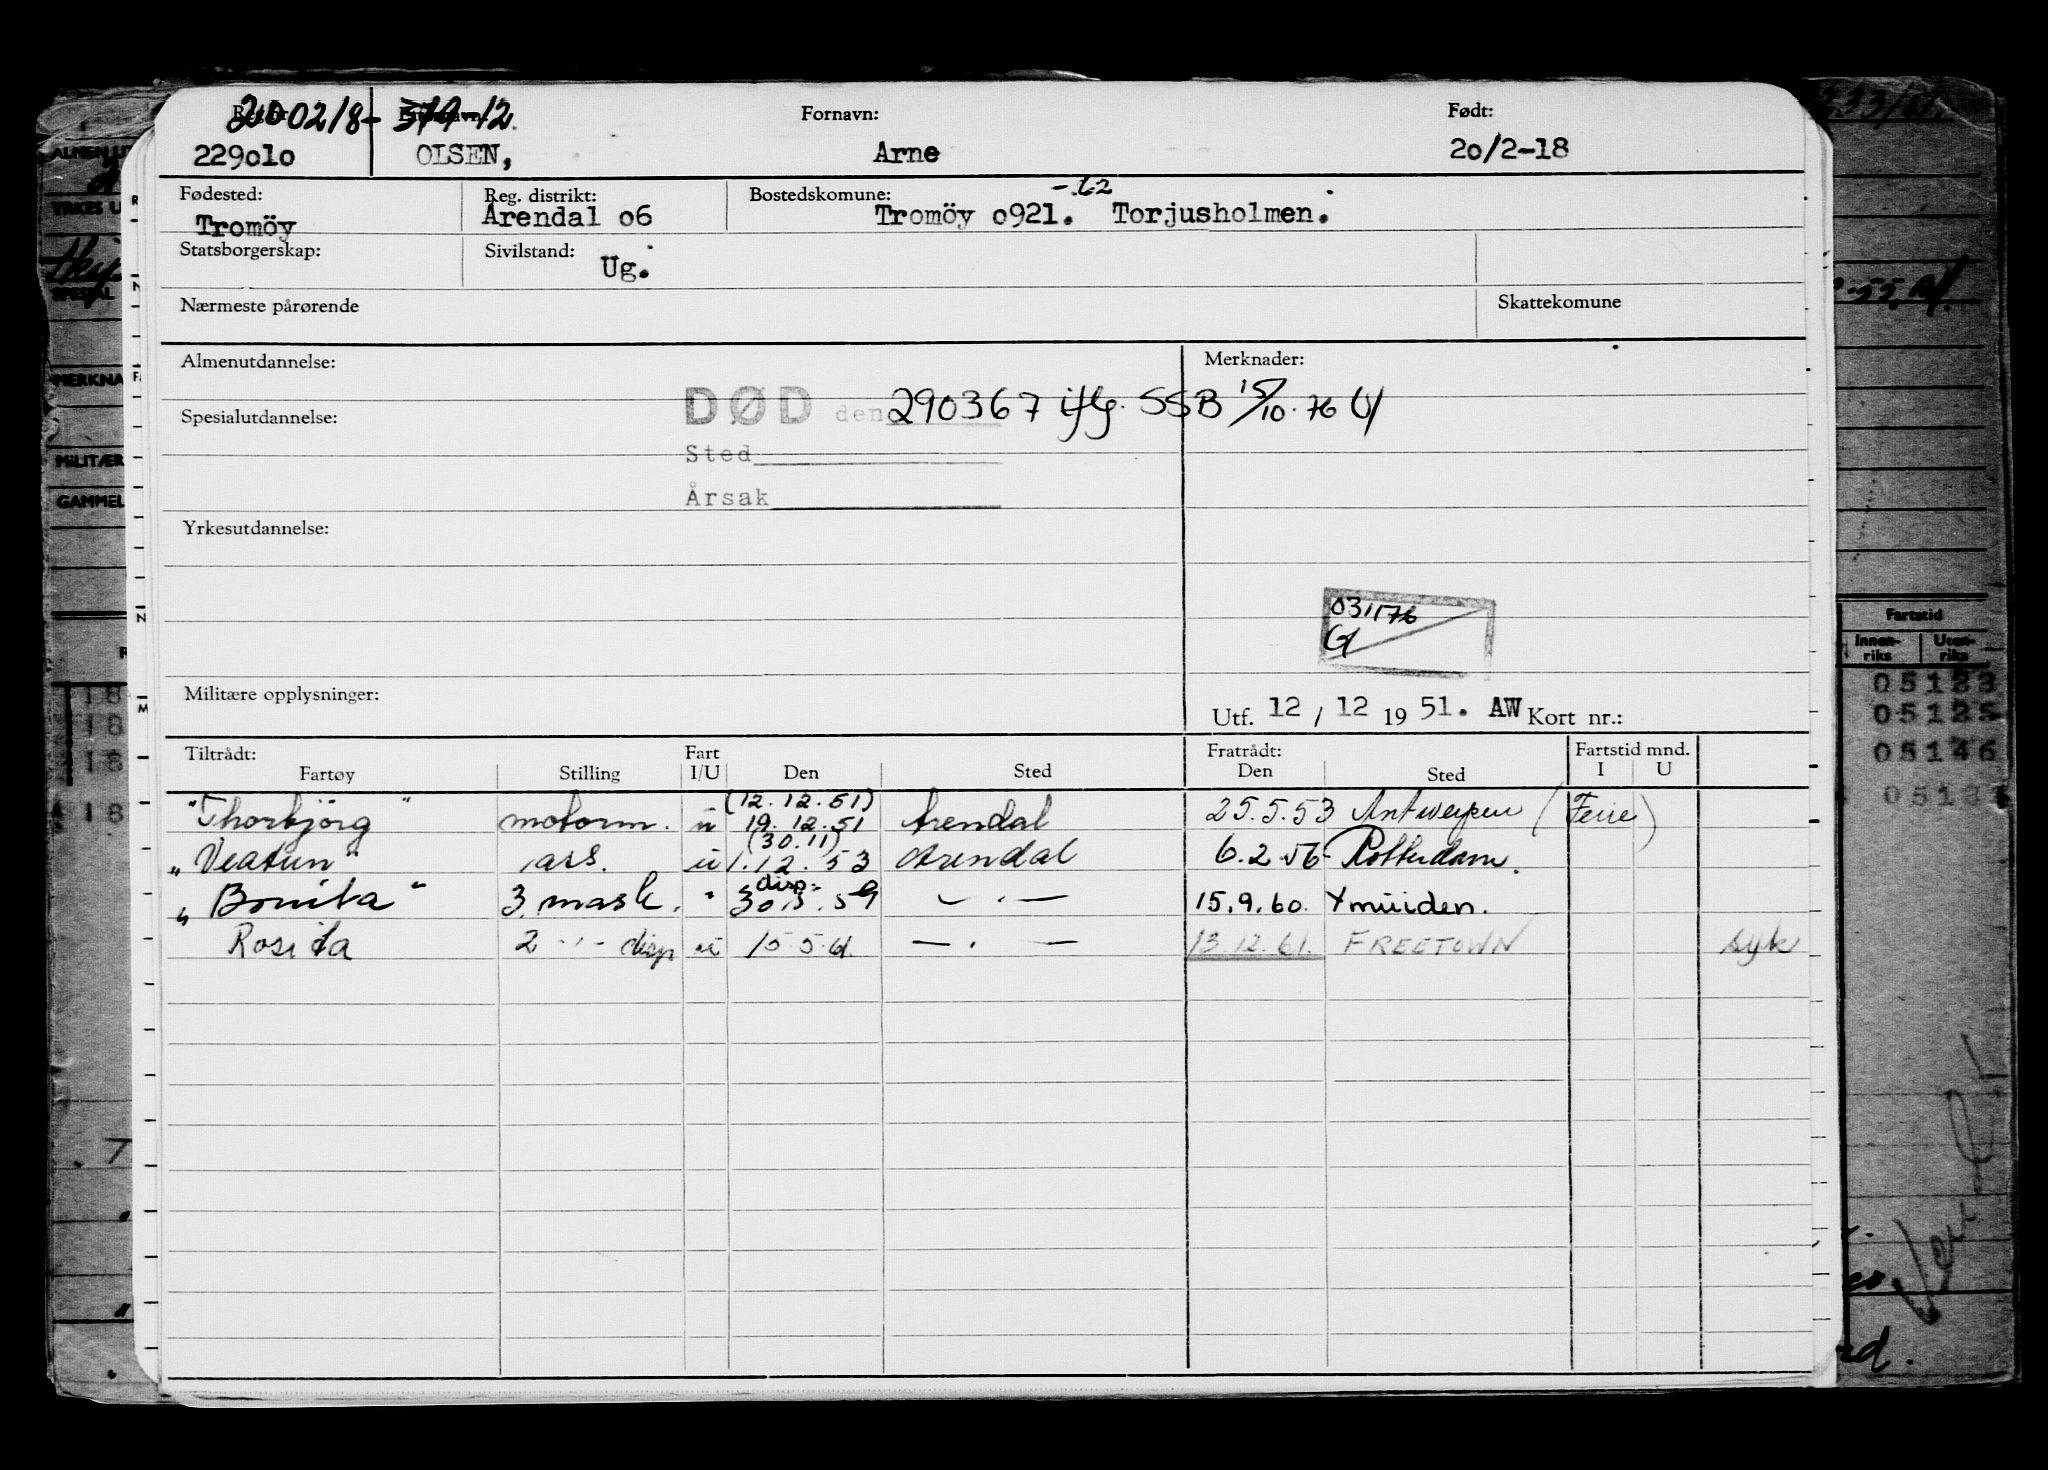 200218- 379-12
229olo OLSEN, Fornavn: Arne Født: 2o/2-18
Fødested: Tromöy Reg. distrikt: Arendal o6 Bostedskomune: Tromöy o921. -62 Torjusholmen.
Statsborgerskap: Sivilstand: Ug.
Nærmeste pårørende Skattekomune
Almenutdannelse: Merknader:
DØD den 290367 iflg. SSB 15/10-76
Spesialutdannelse:
Sted
Årsak
Yrkesutdannelse:
031176
Militære opplysninger: Utf. 12 / 12 19 51. AW Kort nr.:
Tiltrådt: Fart Fratrådt: Fartstid mnd.
Fartøy Stilling I/U Den Sted Den Sted I U
(12.12.51)
"Thorbjörg" motorm. u 19.12.51 Arendal 25.5.53 Antwerpen (Ferie)
(30.11)
"Veatun" ass. u 1.12.53 Arendal 6.2.56 Rotterdam.
disp.
"Bonita" 3. mask. " 30.5.59 — " — 15.9.60. Ymuiden.
Rosita 2 - " - disp u 15.5.61. — " — 13.12.61. FREETOWN syk
ALMEN UT
YRKES U
SPESIAL
MERKNA
MILITÆR
GAMMEL
18
18
18
18
Fartstid
Innen-riks Uten-riks
05123
05125
05146